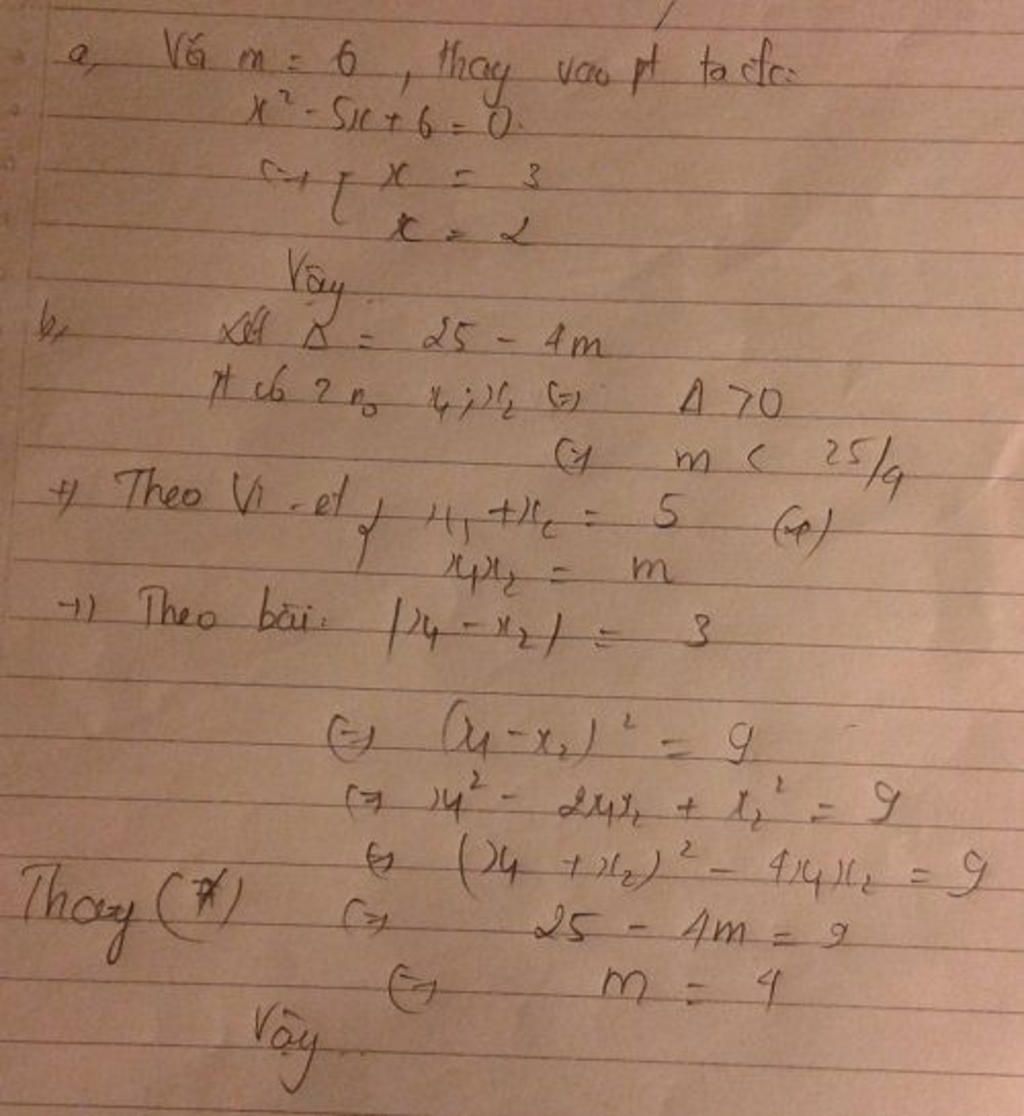 a, Với m = 6, thay vào pt ta đc:
x² - 5x + 6 = 0.
<=> [ x = 3
x = 2
Vậy
b, Xét Δ = 25 - 4m
pt có 2 n₀ x₁; x₂ <=> Δ > 0
<=> m < 25/4
+) Theo Vi-et { x₁ + x₂ = 5 (*)
x₁x₂ = m
+) Theo bài: |x₁ - x₂| = 3
<=> (x₁ - x₂)² = 9
<=> x₁² - 2x₁x₂ + x₂² = 9
<=> (x₁ + x₂)² - 4x₁x₂ = 9
Thay (*) <=> 25 - 4m = 9
<=> m = 4
Vậy